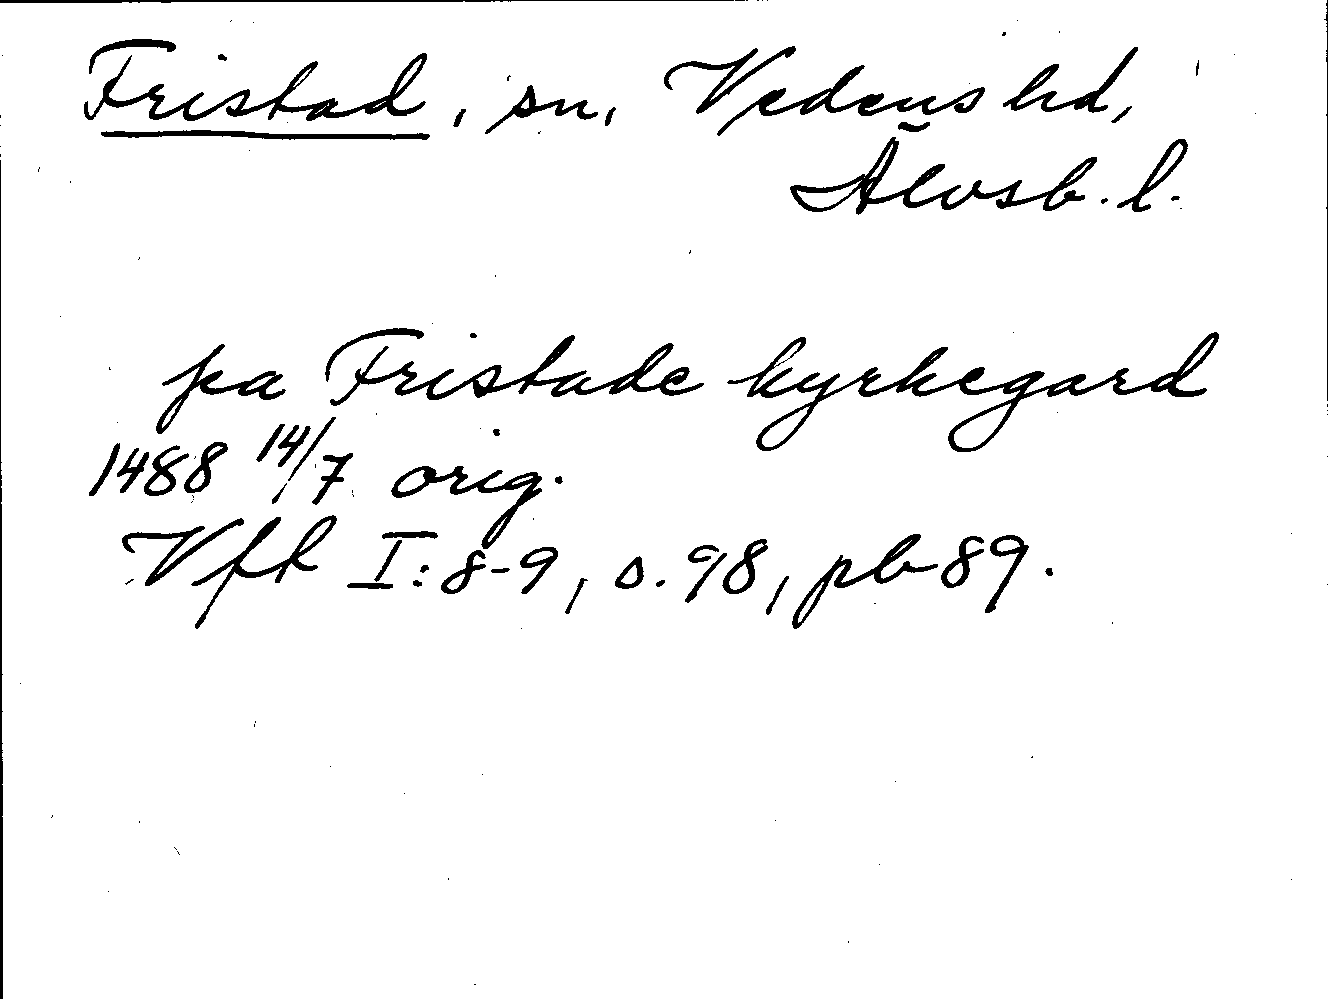 Fristad, sn, Vedens hd,
Älvsb. l.
pa Fristade kyrkegard
1488 14/7 orig.
Vfh I:8-9, s. 98, pb 89.